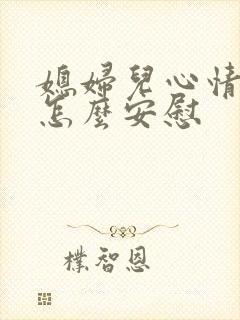 媳婦兒心情
怎麼安慰
樸智恩